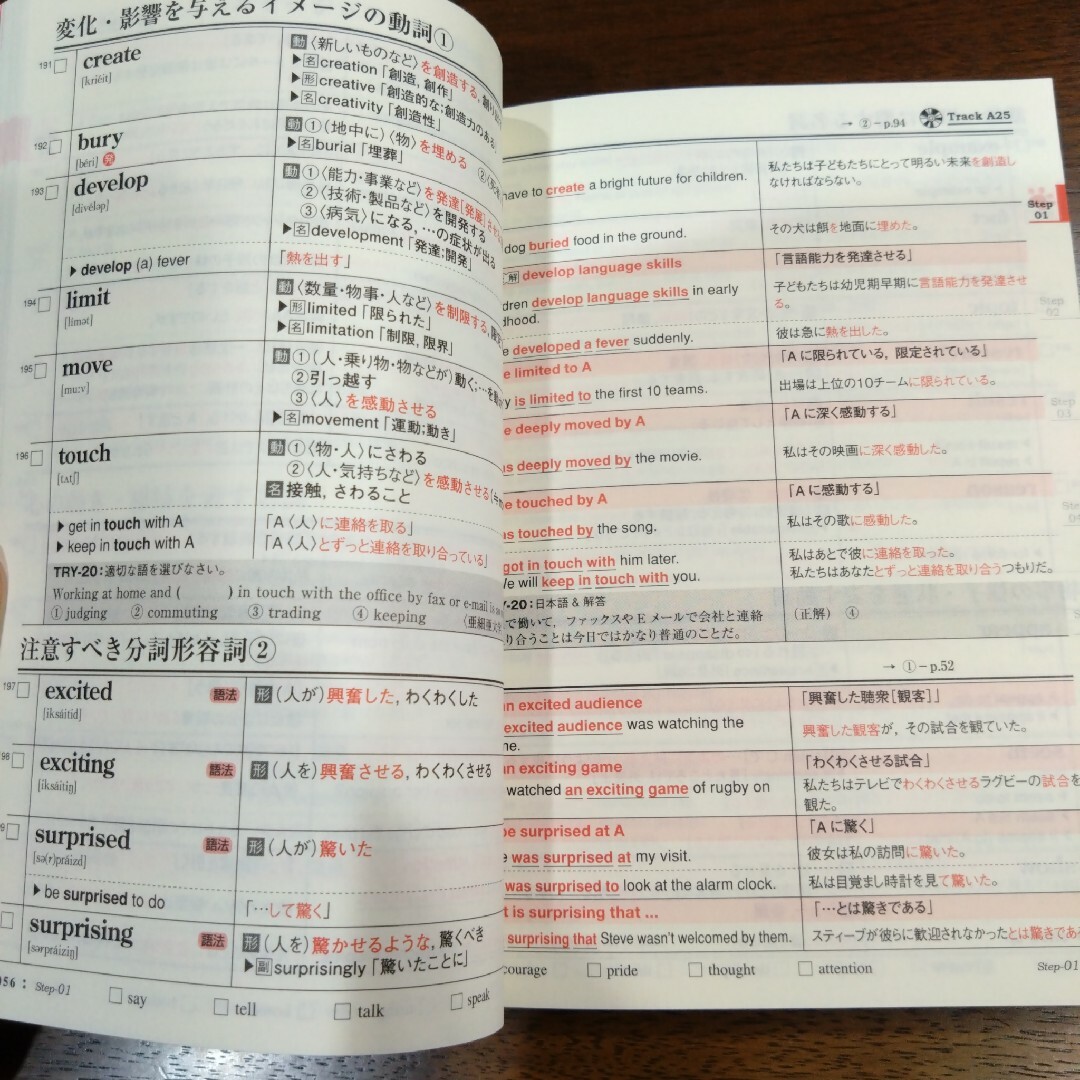 変化・影響を与えるイメージの動詞①
191 create
[kriéit]
動〈新しいものなど〉を創造する,
▶名creation「創造, 創作」
▶形creative「創造的な;創造力のある」
▶名creativity「創造性」
192 bury
[béri] 発
動①(地中に)〈物〉を埋める ②
▶名burial「埋葬」
193 develop
[divéləp]
動①〈能力・事業など〉を発達[発展]させ
②〈技術・製品など〉を開発する
③〈病気〉になる, …の症状が出る
▶名development「発達;開発」
▶ develop (a) fever
「熱を出す」
194 limit
[límət]
動〈数量・物事・人など〉を制限する,
▶形limited「限られた」
▶名limitation「制限, 限界」
195 move
[muːv]
動①(人・乗り物・物などが)動く;…を
②引っ越す
③〈人〉を感動させる
▶名movement「運動;動き」
196 touch
[tʌtʃ]
動①〈物・人〉にさわる
②〈人・気持ちなど〉を感動させる
名接触, さわること
▶ get in touch with A
「A〈人〉に連絡を取る」
▶ keep in touch with A
「A〈人〉とずっと連絡を取り合っている」
TRY-20:適切な語を選びなさい。
Working at home and ( ) in touch with the office by fax or e-mail is
① judging ② commuting ③ trading ④ keeping
注意すべき分詞形容詞②
197 excited 語法
[iksáitid]
形(人が)興奮した, わくわくした
98 exciting 語法
[iksáitiŋ]
形(人を)興奮させる, わくわくさせる
9 surprised 語法
[sə(r)práizd]
形(人が)驚いた
▶ be surprised to do
「…して驚く」
surprising 語法
[sərpráiziŋ]
形(人を)驚かせるような, 驚くべき
▶副surprisingly「驚いたことに」
056 : Step-01
say tell talk speak
→ ②−p.94 Track A25
have to create a bright future for children.
私たちは子どもたちにとって明るい未来を創造し
なければならない。
Step
01
dog buried food in the ground.
その犬は餌を地面に埋めた。
解 develop language skills
「言語能力を発達させる」
dren develop language skills in early
dhood.
子どもたちは幼児期早期に言語能力を発達させ
る。
Step
02
e developed a fever suddenly.
彼は急に熱を出した。
e limited to A
「Aに限られている, 限定されている」
y is limited to the first 10 teams.
出場は上位の10チームに限られている。
Step
03
e deeply moved by A
「Aに深く感動する」
as deeply moved by the movie.
私はその映画に深く感動した。
e touched by A
「Aに感動する」
as touched by the song.
私はその歌に感動した。
got in touch with him later.
私はあとで彼に連絡を取った。
We will keep in touch with you.
私たちはあなたとずっと連絡を取り合うつもりだ。
Y-20:日本語 & 解答
で働いて, ファックスやEメールで会社と連絡
り合うことは今日ではかなり普通のことだ。
(正解) ④
→ ①−p.52
an excited audience
「興奮した聴衆[観客]」
excited audience was watching the
me.
興奮した観客が, その試合を観ていた。
an exciting game
「わくわくさせる試合」
watched an exciting game of rugby on
私たちはテレビでわくわくさせるラグビーの試合を
観た。
be surprised at A
「Aに驚く」
e was surprised at my visit.
彼女は私の訪問に驚いた。
was surprised to look at the alarm clock.
私は目覚まし時計を見て驚いた。
It is surprising that ...
「…とは驚きである」
surprising that Steve wasn't welcomed by them.
スティーブが彼らに歓迎されなかったとは驚きであ
courage pride thought attention
Step-01